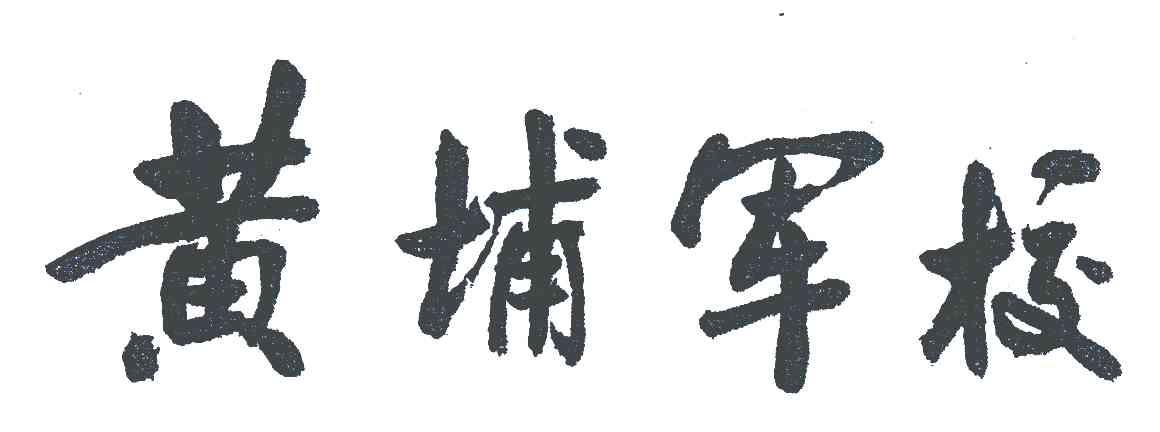 黄埔军校